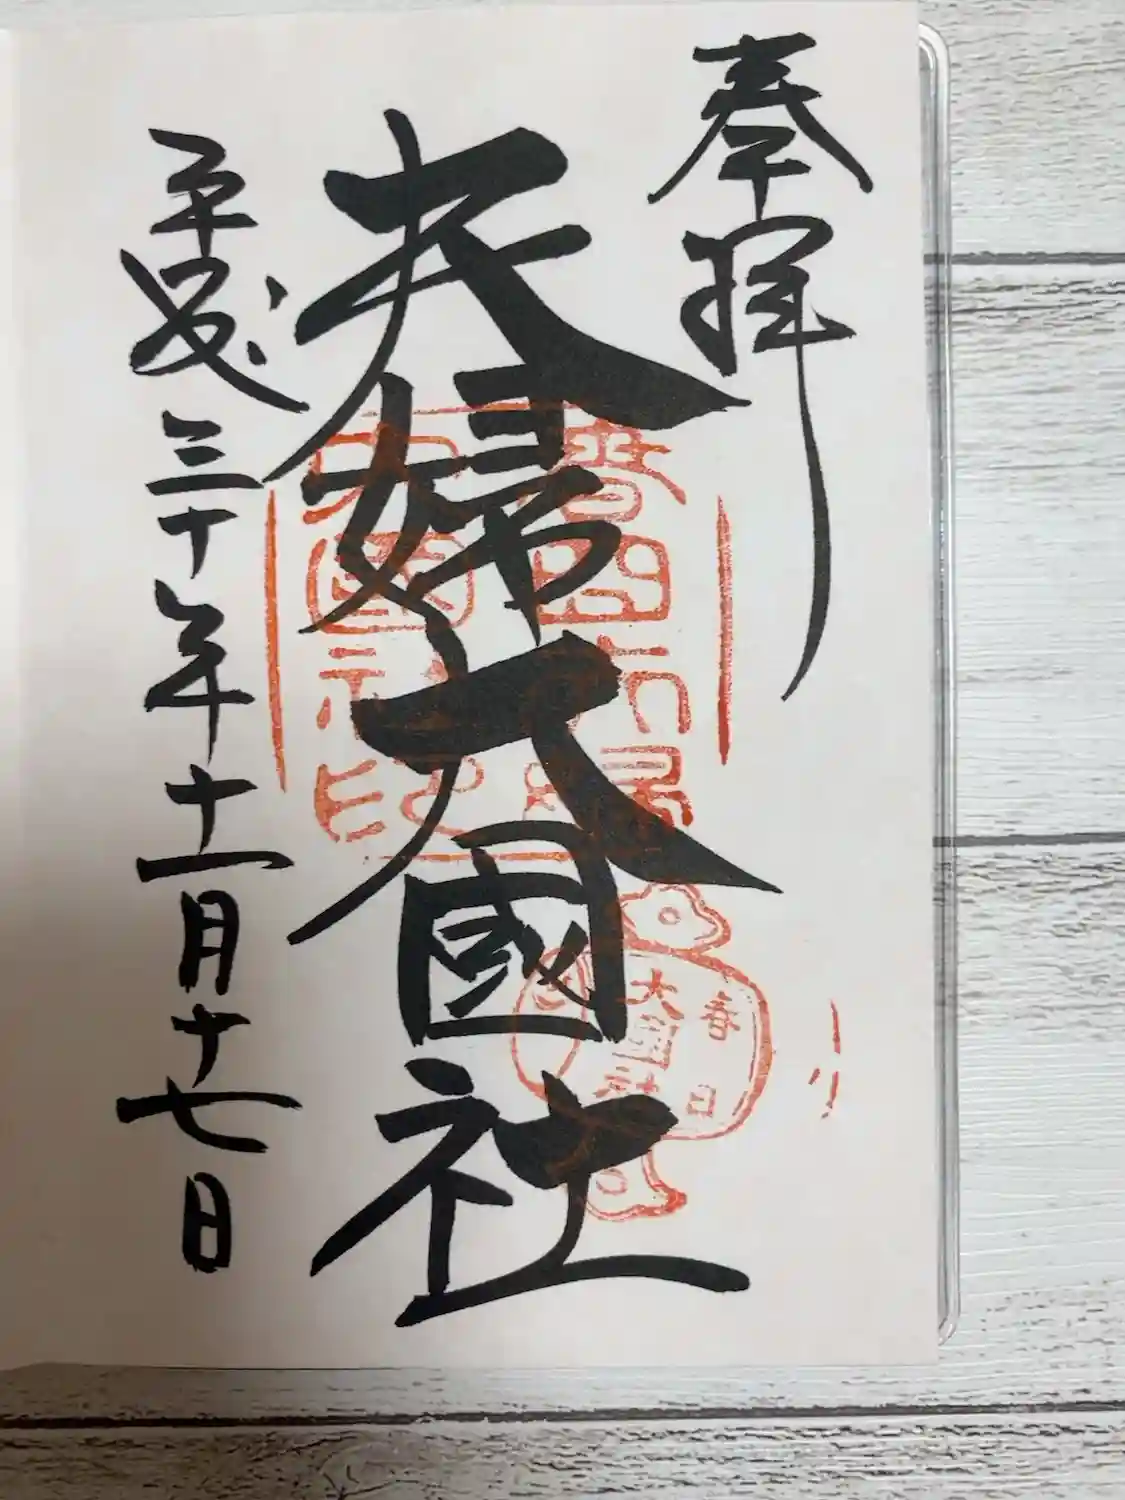 奉拝
夫婦大國社
平成三十年十一月十七日
春日
大國社